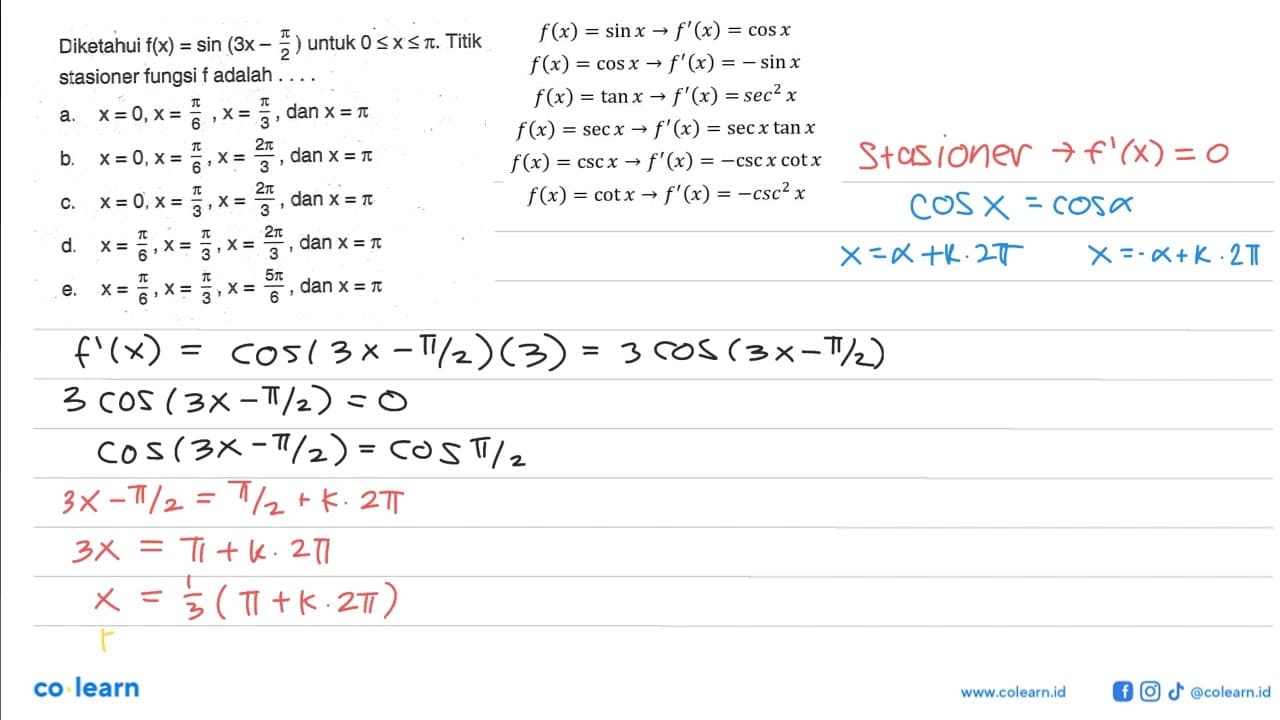 Diketahui f(x) = sin (3x − π/2) untuk 0 ≤ x ≤ π. Titik
stasioner fungsi f adalah . . . .
a. x = 0, x = π/6 , x = π/3 , dan x = π
b. x = 0, x = π/6 , x = 2π/3 , dan x = π
c. x = 0, x = π/3 , x = 2π/3 , dan x = π
d. x = π/6 , x = π/3 , x = 2π/3 , dan x = π
e. x = π/6 , x = π/3 , x = 5π/6 , dan x = π
f(x) = sin x → f'(x) = cos x
f(x) = cos x → f'(x) = − sin x
f(x) = tan x → f'(x) = sec² x
f(x) = sec x → f'(x) = sec x tan x
f(x) = csc x → f'(x) = −csc x cot x
f(x) = cot x → f'(x) = −csc² x
Stasioner → f'(x) = 0
cos x = cos α
x = α + k. 2π x = -α + k . 2π
f'(x) = cos(3x − π/2)(3) = 3 cos(3x − π/2)
3 cos(3x − π/2) = 0
cos(3x − π/2) = cos π/2
3x − π/2 = π/2 + k. 2π
3x = π + k. 2π
x = 1/3 (π + k. 2π)
co learn
www.colearn.id
@colearn.id